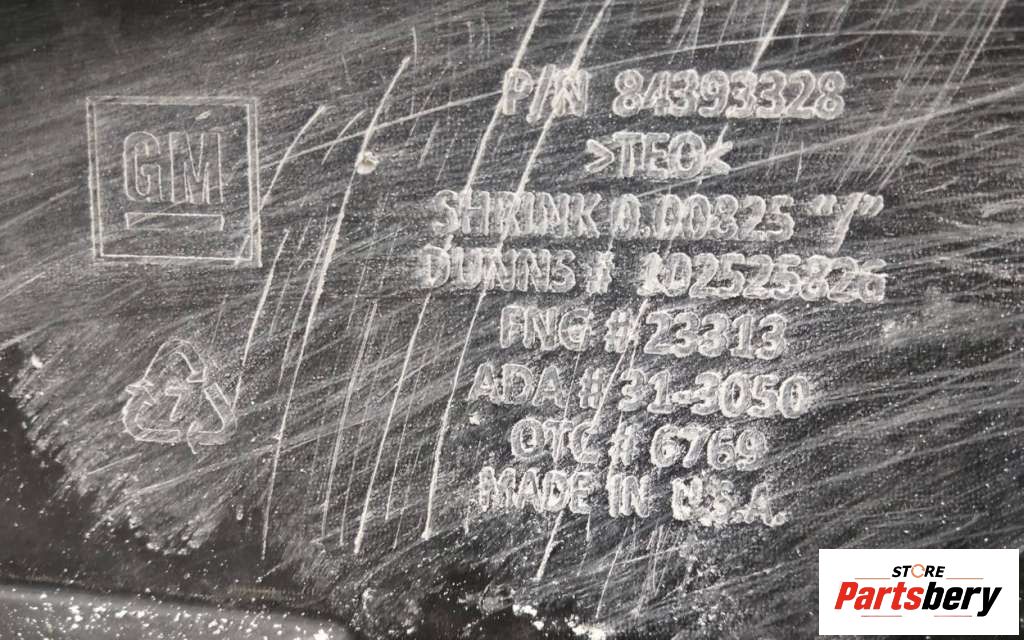 GM
P/N 84393328
>TEO<
SHRINK 0.00825 "/"
DUNNS # 102525826
FNG # 23313
ADA # 31-3050
OTC # 6769
MADE IN U.S.A.
7
STORE
Partsbery